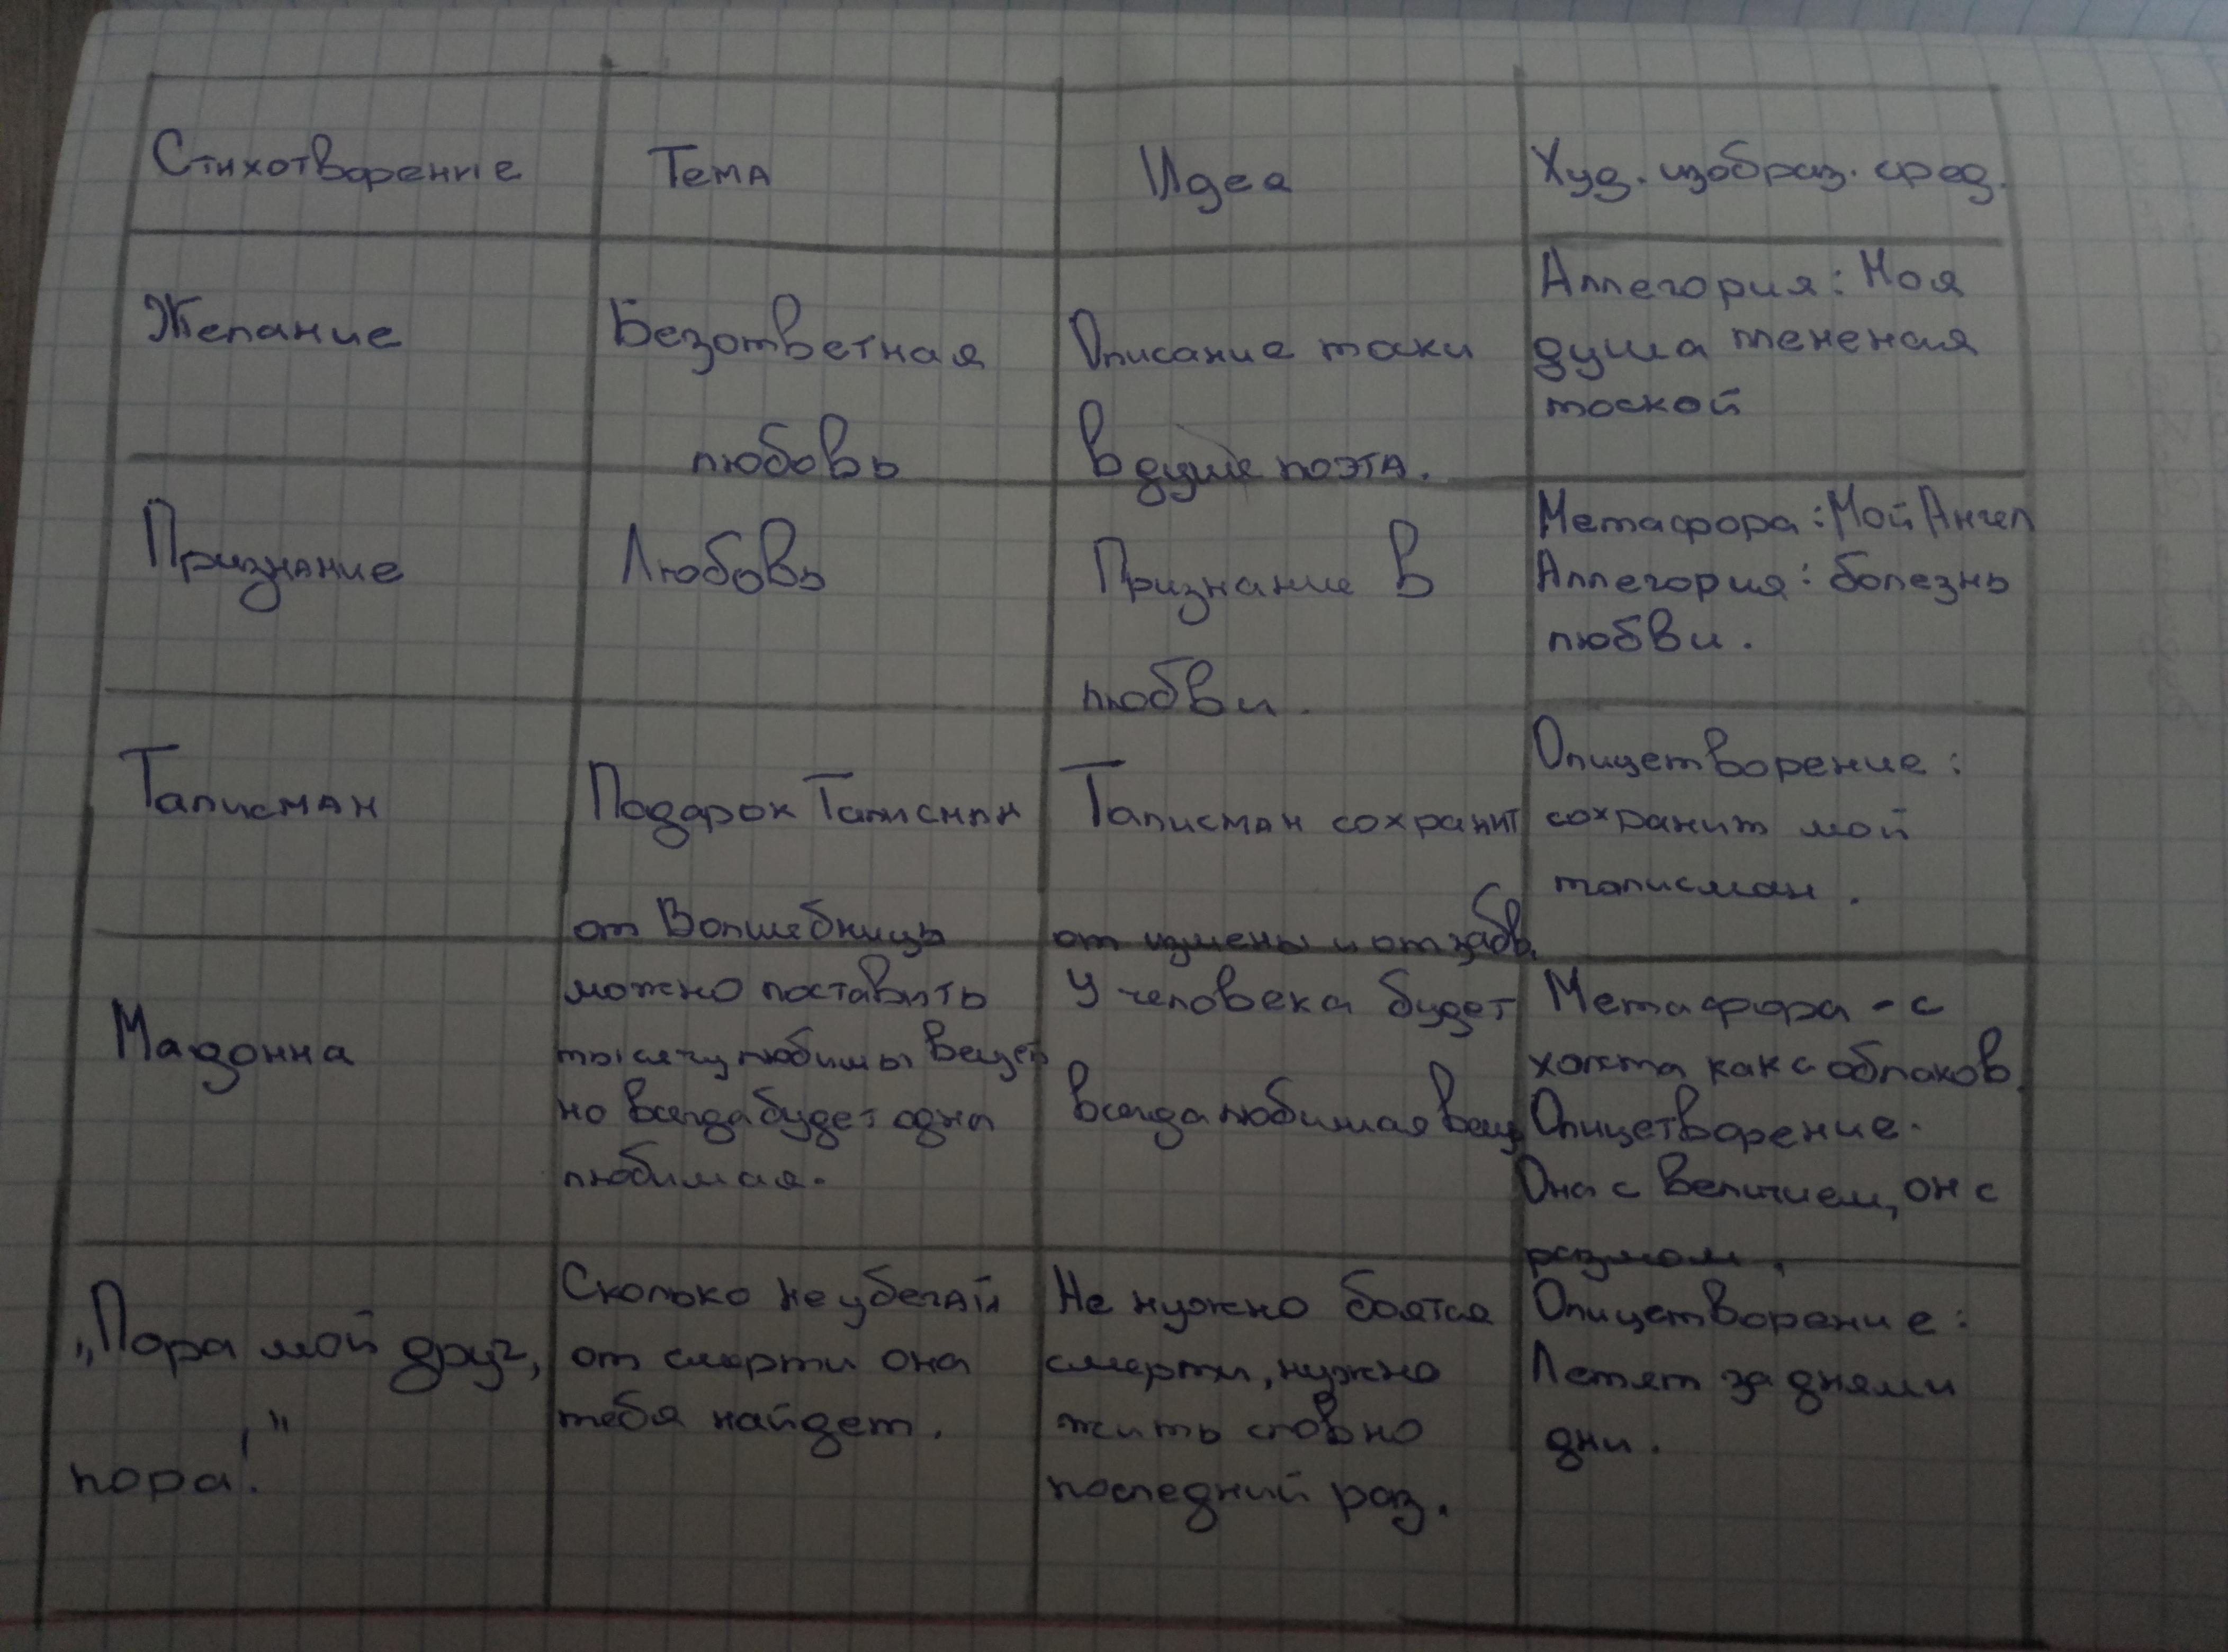 Стихотворение Тема Идея Худ. изображ. сред.
Желание
Безответная
любовь
Описание таки
в душе поэта.
Аллегория: Моя
душа плененая
тоской
Признание
Любовь
Признание в
любви.
Метафора: Мой Ангел
Аллегория: болезнь
любви.
Талисман
Подарок Талисман
от Волшебницы
Талисман сохранит
от измены и от забв.
Олицетворение:
сохранит мой
талисман.
Мадонна
можно поставить
тысячу любимы вещей
но всегда будет одна
любимая.
У человека будет
всегда любимая вещ
Метафора - с
холста как с облаков.
Олицетворение.
Она с величием, он с
разумом.
„Пора мой друг,
пора!"
Сколько не убегай
от смерти она
тебя найдет.
Не нужно боятся
смерти, нужно
жить словно
последний раз.
Олицетворение:
Летят за днями
дни.